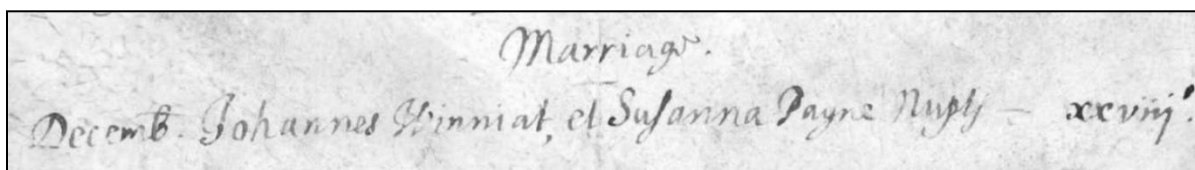 Marriage.
Decemb. Johannes Winniat, et Susanna Payne Nupt — xxviijº.